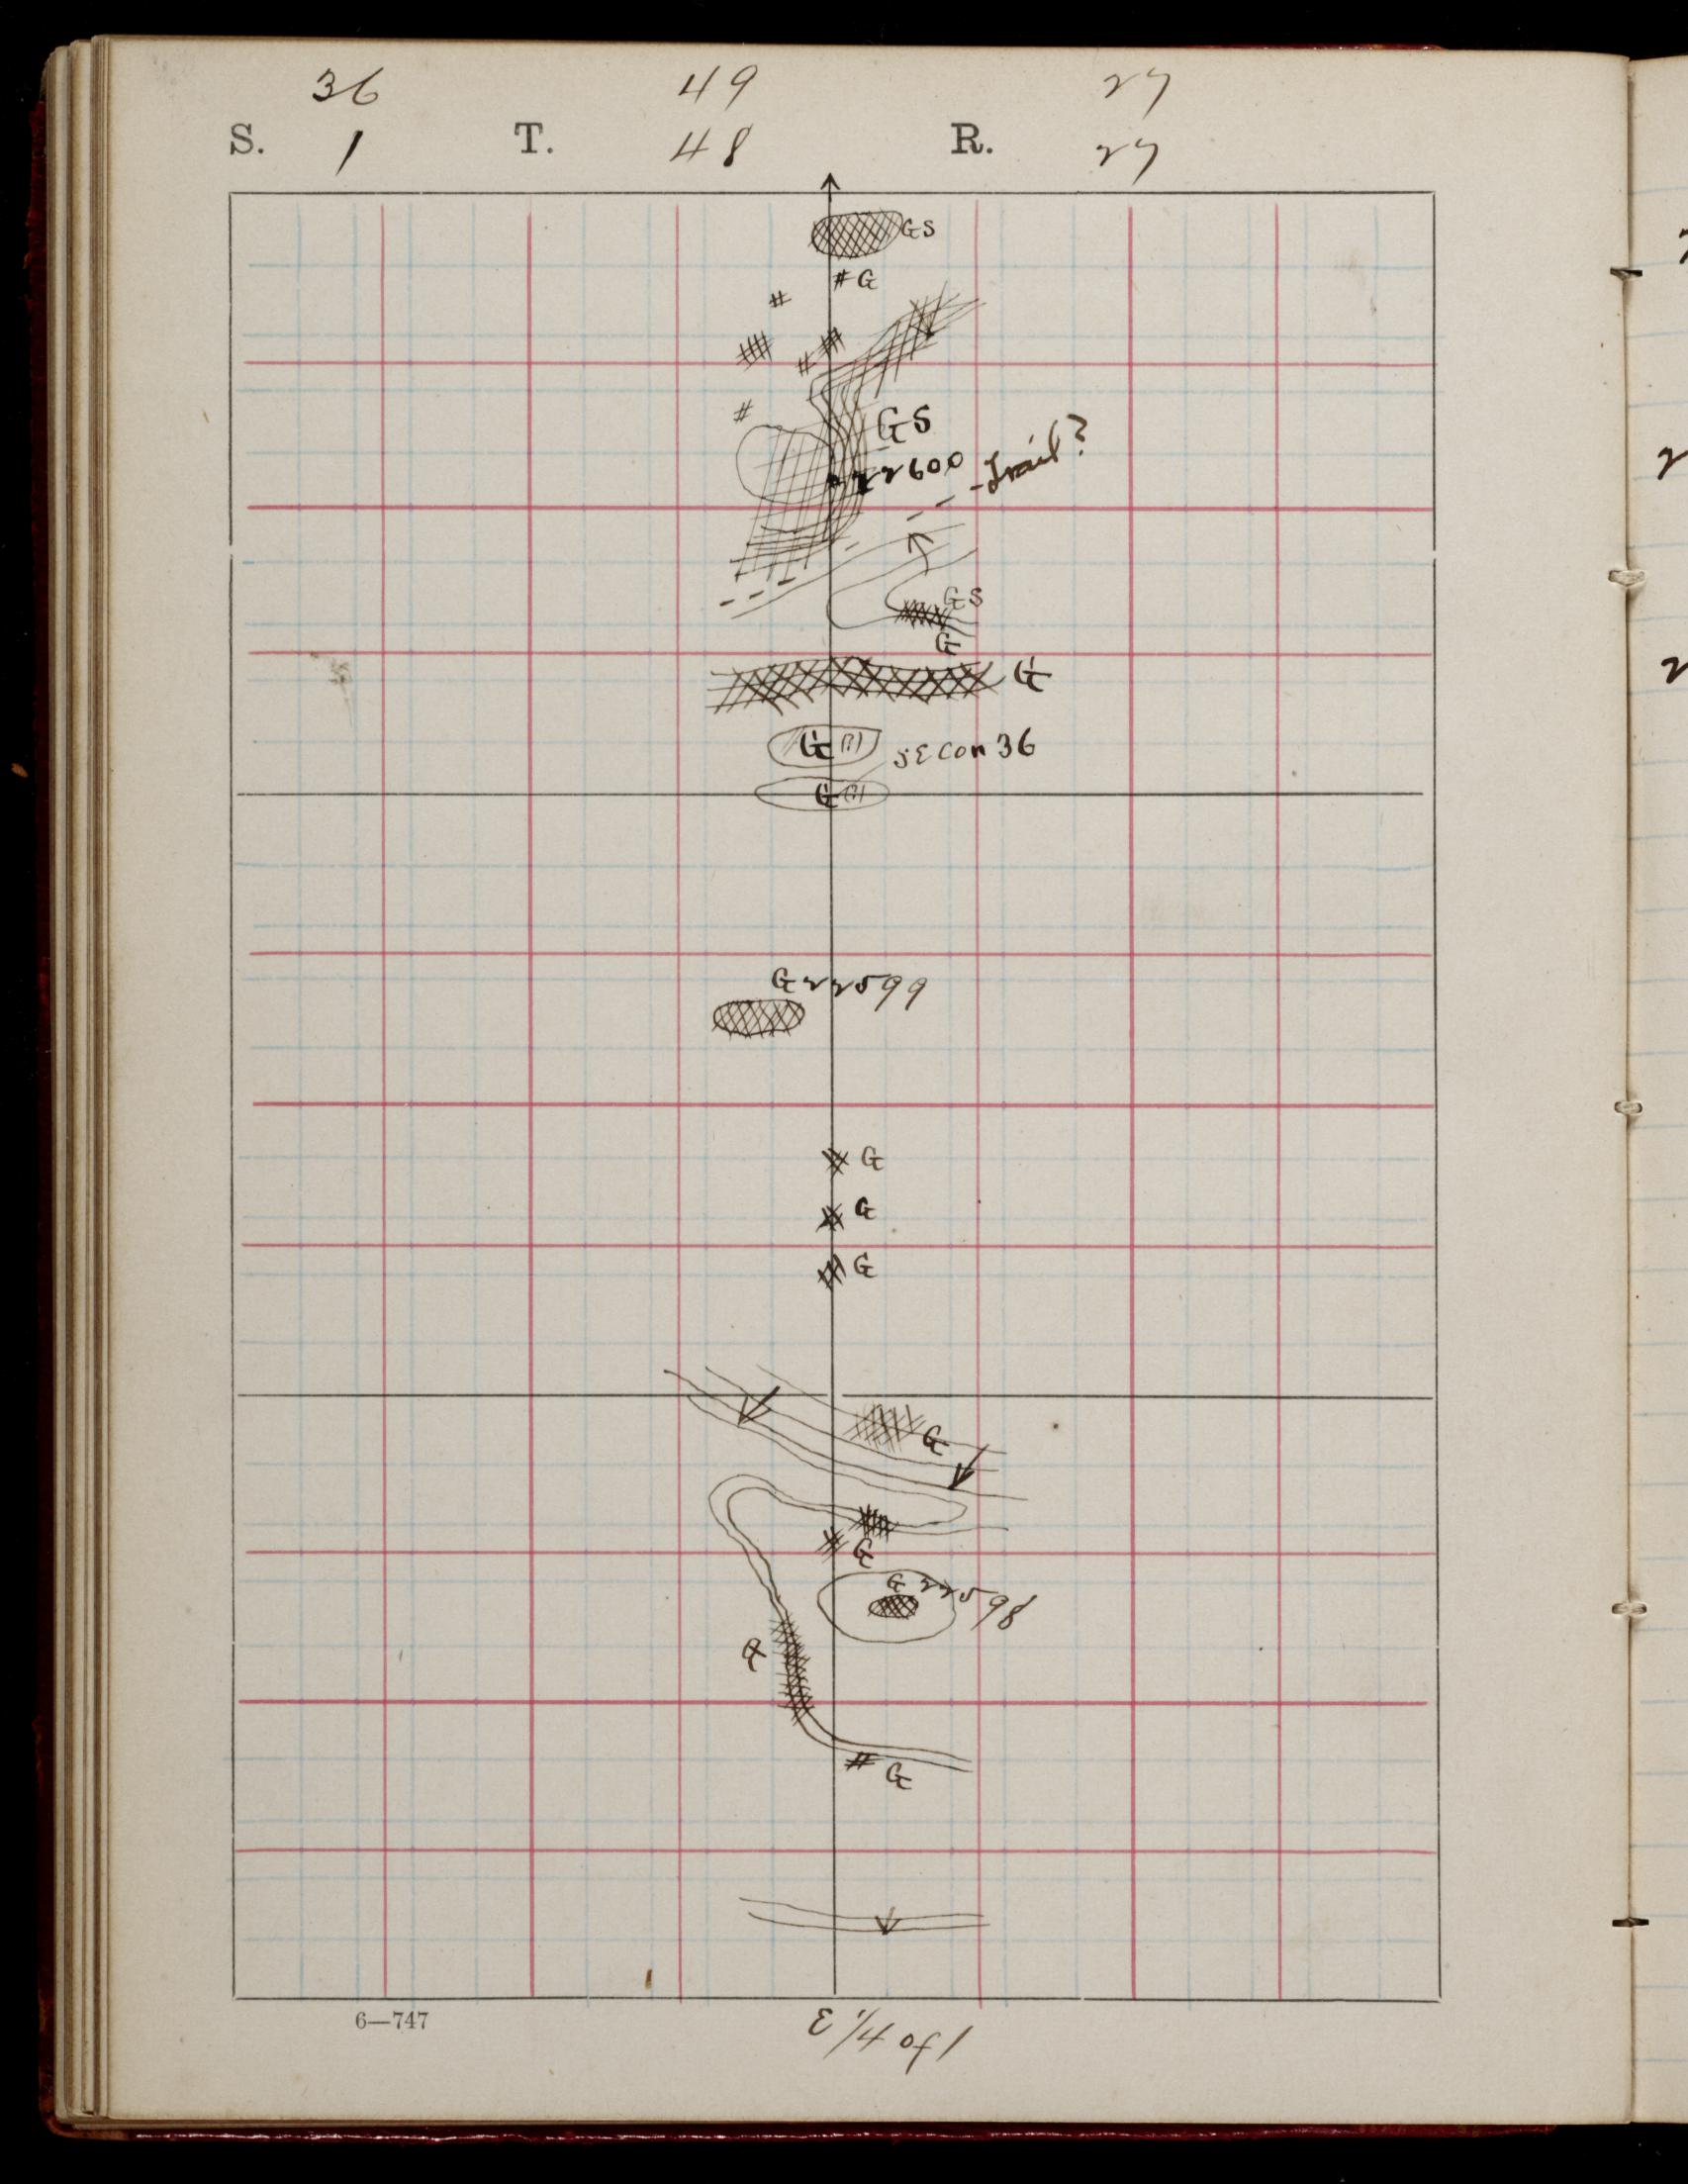 36 49 27
S. 1 T. 48 R. 27
GS
# G
GS
22600
Trail?
GS
G
G
G (?)
SE Cor 36
G (?)
G 22599
G
G
G
G
G
G 22598
G
G
6—747
E 1/4 of 1